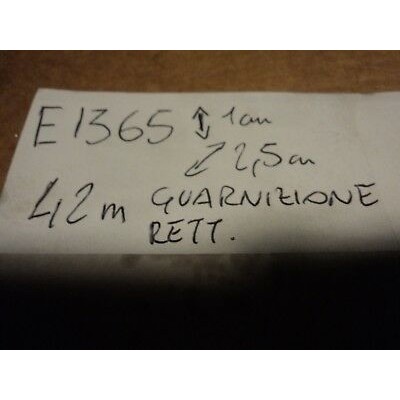 E1365 ↕ 1cm
↗ 2,5cm
4,2m GUARNIZIONE
RETT.